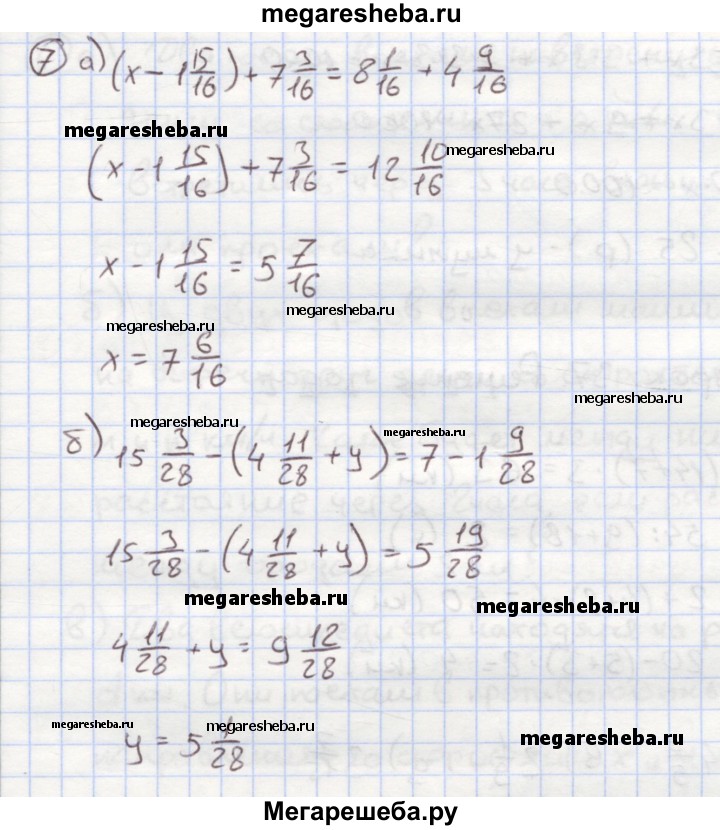 megaresheba.ru
7 а) (x − 1 15/16) + 7 3/16 = 8 1/16 + 4 9/16
megaresheba.ru
megaresheba.ru
(x − 1 15/16) + 7 3/16 = 12 10/16
x − 1 15/16 = 5 7/16
megaresheba.ru
megaresheba.ru
x = 7 6/16
megaresheba.ru
megaresheba.ru
megaresheba.ru
б) 15 3/28 − (4 11/28 + y) = 7 − 1 9/28
15 3/28 − (4 11/28 + y) = 5 19/28
megaresheba.ru
megaresheba.ru
4 11/28 + y = 9 12/28
megaresheba.ru
megaresheba.ru
megaresheba.ru
y = 5 1/28
Мегарешеба.ру